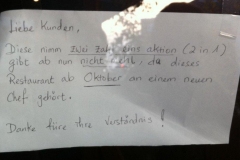 Liebe Kunden,
Diese nimm zwo zahl eins aktion (2 in 1)
gibt ab nun nicht mehr, da dieses
Restaurant ab Oktober an einem neuen
Chef gehört.
Danke füre Ihre Verständnis!